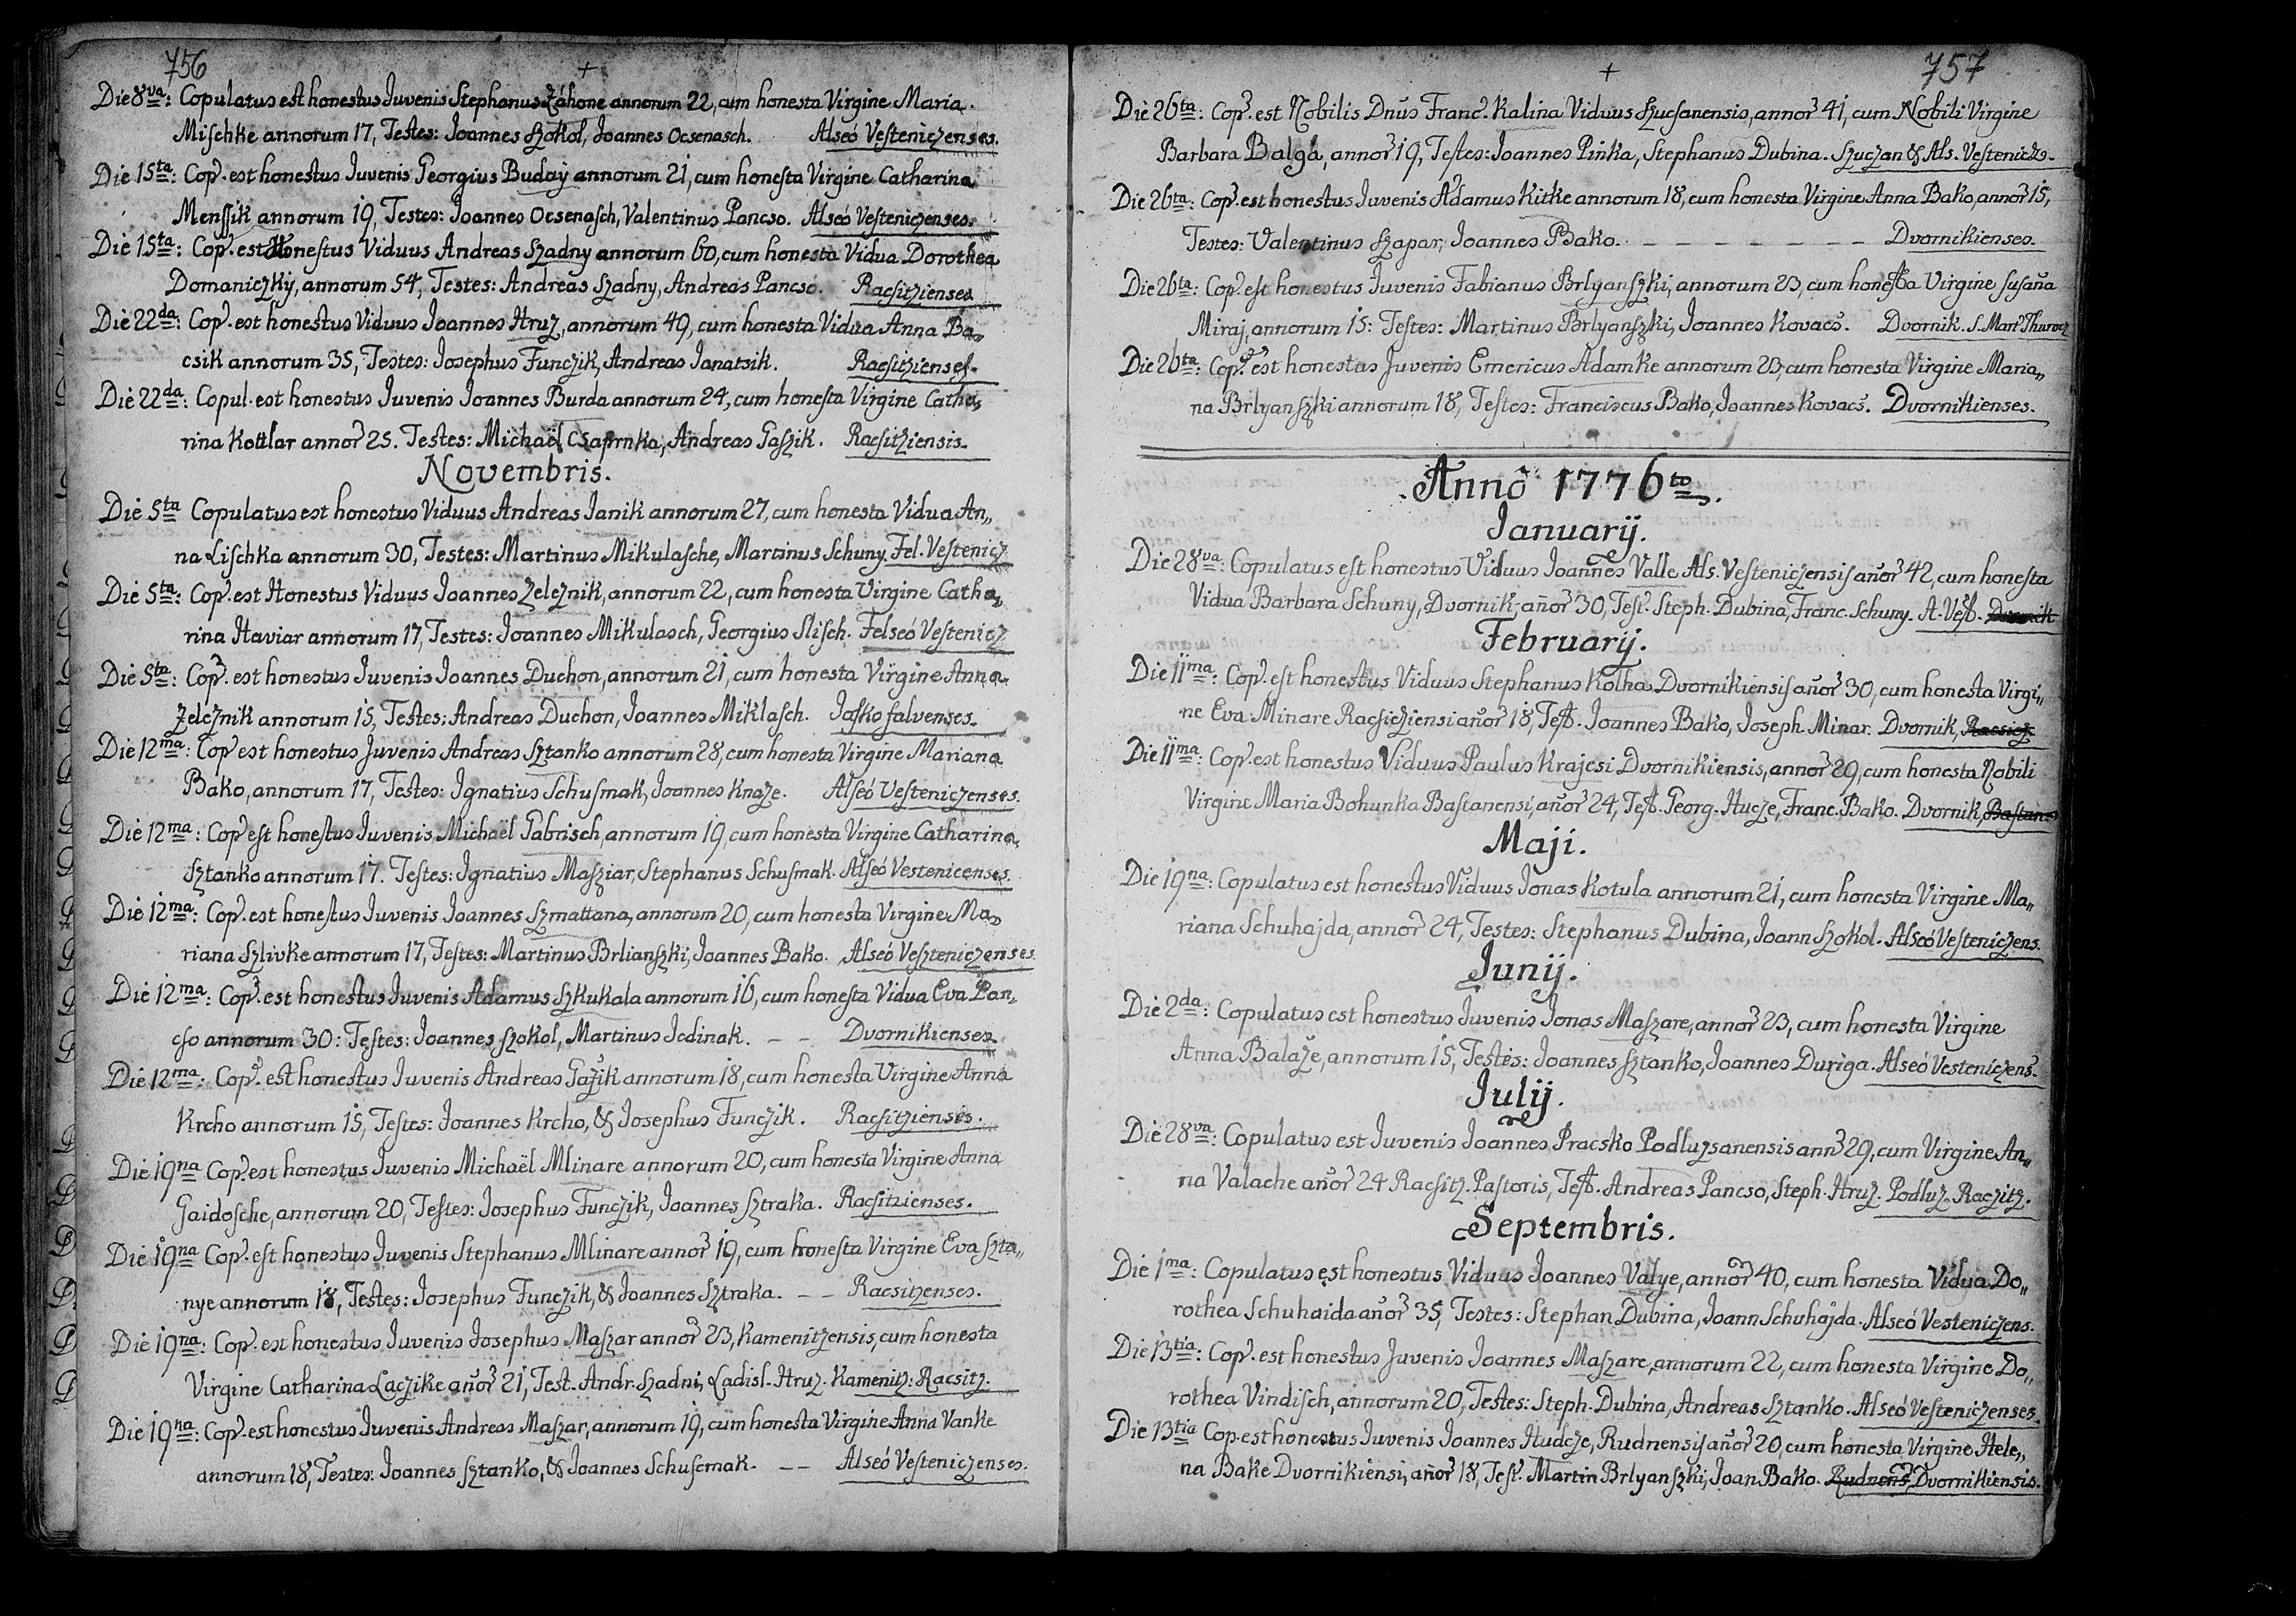 756
+
Die 8va: Copulatus est honestus Iuvenis Stephanus Záhone annorum 22, cum honesta Virgine Maria
Mischke annorum 17, Testes: Ioannes Szokol, Ioannes Ocsenasch. Alseó Vesteniczenses.
Die 15ta: Cop. est honestus Iuvenis Georgius Buday annorum 21, cum honesta Virgine Catharina
Menssik annorum 19, Testes: Ioannes Ocsenasch, Valentinus Pancso. Alseó Vesteniczenses.
Die 15ta: Cop. est Honestus Viduus Andreas Szadny annorum 60, cum honesta Vidua Dorothea
Domaniczky, annorum 54, Testes: Andreas Szadny, Andreas Pancso. Racsitzienses
Die 22da: Cop. est honestus Viduus Ioannes Hruz, annorum 49, cum honesta Vidua Anna Ba„
csik annorum 35, Testes: Iosephus Funczik, Andreas Ianatsik. Racsitzienses.
Die 22da: Copul. est honestus Iuvenis Ioannes Burda annorum 24, cum honesta Virgine Catha„
rina Kottlar annor 25. Testes: Michaël Csaprnka, Andreas Gaszik. Racsitziensis.
Novembris.
Die 5ta Copulatus est honestus Viduus Andreas Ianik annorum 27, cum honesta Vidua An„
na Lischka annorum 30, Testes: Martinus Mikulasche, Martinus Schuny. Fel. Vestenicz
Die 5ta: Cop. est Honestus Viduus Ioannes Zeleznik, annorum 22, cum honesta Virgine Catha„
rina Haviar annorum 17, Testes: Ioannes Mikulasch, Georgius Slisch. Felseó Vestenicz
Die 5ta: Cop. est honestus Iuvenis Ioannes Duchon, annorum 21, cum honesta Virgine Anna
Zeleznik annorum 15, Testes: Andreas Duchon, Ioannes Miklasch. Josko falvenses.
Die 12ma: Cop est honestus Juvenis Andreas Sztanko annorum 28, cum honesta Virgine Mariana
Bako, annorum 17, Testes: Ignatius Schusmak, Ioannes Knaze. Alseó Vesteniczenses.
Die 12ma: Cop est honestus Iuvenis Michaël Gabrisch, annorum 19, cum honesta Virgine Catharina
Sztanko annorum 17. Testes: Ignatius Masziar, Stephanus Schusmak. Alseó Vestenicenses.
Die 12ma: Cop. est honestus Iuvenis Ioannes Szmattana, annorum 20, cum honesta Virgine Ma„
riana Szlivke annorum 17, Testes: Martinus Brlianszki, Ioannes Bako. Alseó Veszteniczenses.
Die 12ma: Cop. est honestus Iuvenis Adamus Szkukala annorum 16, cum honesta Vidua Eva Pan„
cso annorum 30: Testes: Ioannes Szokol, Martinus Jedinak. – – Dvornikienses
Die 12ma: Cop. est honestus Iuvenis Andreas Gazik annorum 18, cum honesta Virgine Anna
Krcho annorum 15, Testes: Ioannes Krcho, & Iosephus Funczik. Racsitziensis.
Die 19na Cop. est honestus Iuvenis Michaël Mlinare annorum 20, cum honesta Virgine Anna
Gaidosche, annorum 20, Testes: Iosephus Funczik, Ioannes Sztraka. Racsitzienses.
Die 19na Cop. est honestus Iuvenis Stephanus Mlinare annor 19, cum honesta Virgine Eva Szta„
nye annorum 18, Testes: Iosephus Funczik, & Ioannes Sztraka. – – Racsitzenses.
Die 19na: Cop. est honestus Iuvenis Iosephus Maszar annor 23, Kamenitzensis, cum honesta
Virgine Catharina Laczike añor 21, Test. Andr. Szadni, Ladisl. Hruz. Kamenitz: Racsitz.
Die 19na: Cop. est honestus Iuvenis Andreas Maszar, annorum 19, cum honesta Virgine Anna Vanke
annorum 18, Testes: Ioannes Sztanko, & Ioannes Schuscmak. – – Alseó Vesteniczenses.
757
+
Die 26ta: Cop. est Nobilis Dnus Franc. Kalina Viduus Szucsanensis, annor 41, cum Nobili Virgine
Barbara Balga, annor 19, Testes: Ioannes Pinka, Stephanus Dubina. Szuczan & Als. Vestenicks.
Die 26ta: Cop. est honestus Iuvenis Adamus Kitke annorum 18, cum honesta Virgine Anna Bako, annor 15,
Testes: Valentinus Szapar, Ioannes Bako. – – – – – – – Dvornikienses.
Die 26ta: Cop. est honestus Iuvenis Fabianus Brlyanszki, annorum 23, cum honesta Virgine Susaña
Miraj, annorum 15: Testes: Martinus Brlyanszki, Ioannes Kovacs. Dvornik. S. Mart Thurocz
Die 26ta: Cop. est honestus Juvenis Emericus Adamke annorum 23, cum honesta Virgine Maria„
na Brlyanszki annorum 18, Testes: Franciscus Bako, Ioannes Kovacs. Dvornikienses.
Anno 1776to.
Ianuarij.
Die 28va: Copulatus est honestus Viduus Ioannes Valle Als. Vesteniczensis añor 42, cum honesta
Vidua Barbara Schuny, Dvornik, añor 30, Test. Steph. Dubina, Franc. Schuny. A. Vest. Dvornik
Februarij.
Die 11ma: Cop. est honestus Viduus Stephanus Kotha Dvornikiensis añor 30, cum honesta Virgi„
ne Eva Minare Racsicziensi añor 18, Test. Ioannes Bako, Ioseph Minar. Dvornik, Racsicz
Die 11ma: Cop. est honestus Viduus Paulus Krajcsi Dvornikiensis, annor 29, cum honesta Nobili
Virgine Maria Bohunka Bastanensi, añor 24, Test. Georg. Hucze, Franc. Bako. Dvornik, Bastan.
Maji.
Die 19na: Copulatus est honestus Viduus Ionas Kotula annorum 21, cum honesta Virgine Ma„
riana Schuhajda, annor 24, Testes: Stephanus Dubina, Ioann Szokol. Alseó Vesteniczens.
Junij.
Die 2da: Copulatus est honestus Iuvenis Ionas Maszare, annor 23, cum honesta Virgine
Anna Balaze, annorum 15, Testes: Ioannes Sztanko, Ioannes Duriga. Alseó Vesteniczens.
Iulij.
Die 28va: Copulatus est Iuvenis Ioannes Pracsko Podluzsanensis ann 29, cum Virgine An„
na Valache añor 24 Racsitz. Pastoris, Test. Andreas Pancso, Steph. Hruz. Podluz. Raczitz.
Septembris.
Die 1ma: Copulatus est honestus Viduus Ioannes Valye, annor 40, cum honesta Vidua Do„
rothea Schuhaida añor 35, Testes: Stephan Dubina, Ioann Schuhajda. Alseó Vesteniczens.
Die 13tia: Cop. est honestus Juvenis Ioannes Maszare, annorum 22, cum honesta Virgine Do„
rothea Vindisch, annorum 20, Testes: Steph. Dubina, Andreas Sztanko. Alseó Vesteniczenses.
Die 13tia Cop. est honestus Iuvenis Ioannes Hudcze, Rudnensis añor 20, cum honesta Virgine Hele„
na Bake Dvornikiensi, añor 18, Test. Martin Brlyanszki, Ioan Bako. Rudnens, Dvornikiensis.